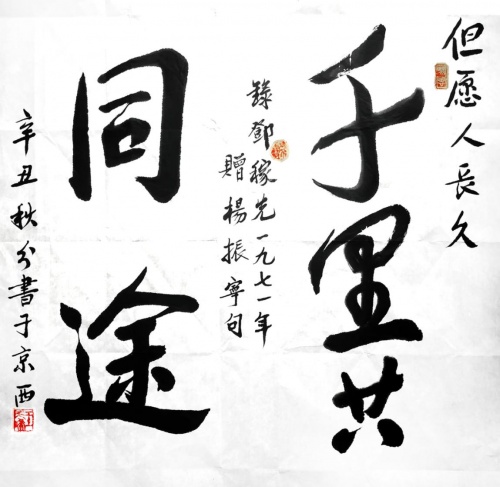 但愿人長久
千里共
同途
錄鄧稼先一九七一年
贈楊振寧句
辛丑秋分書于京西